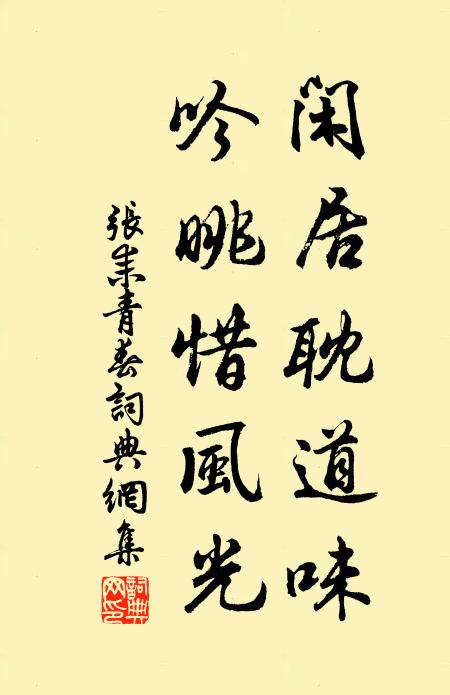 閑居耽道味
吟眺惜風光
張耒青春詞典網集
詞典
网印